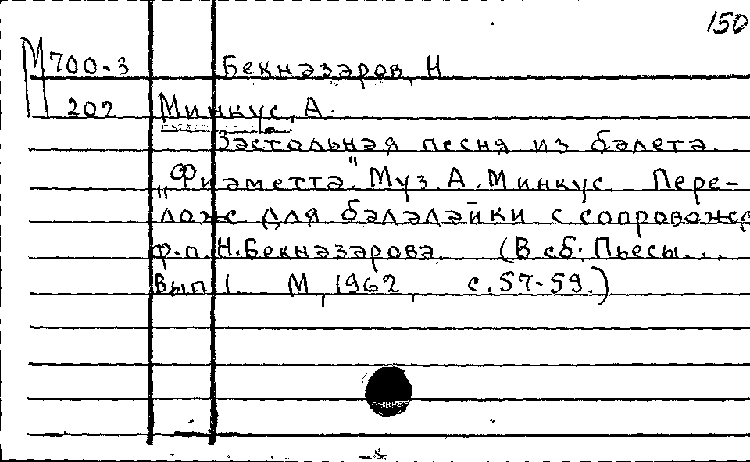 150
М 700-3 Бекназаров, Н
202 Минкус, А.
Застольная песня из балета
„Фиаметта" Муз. А. Минкус Пере-
лож для балалайки с сопровожд
ф-п. Н. Бекназарова (В сб: Пьесы...
Вып 1. М, 1962, с. 57-59.)